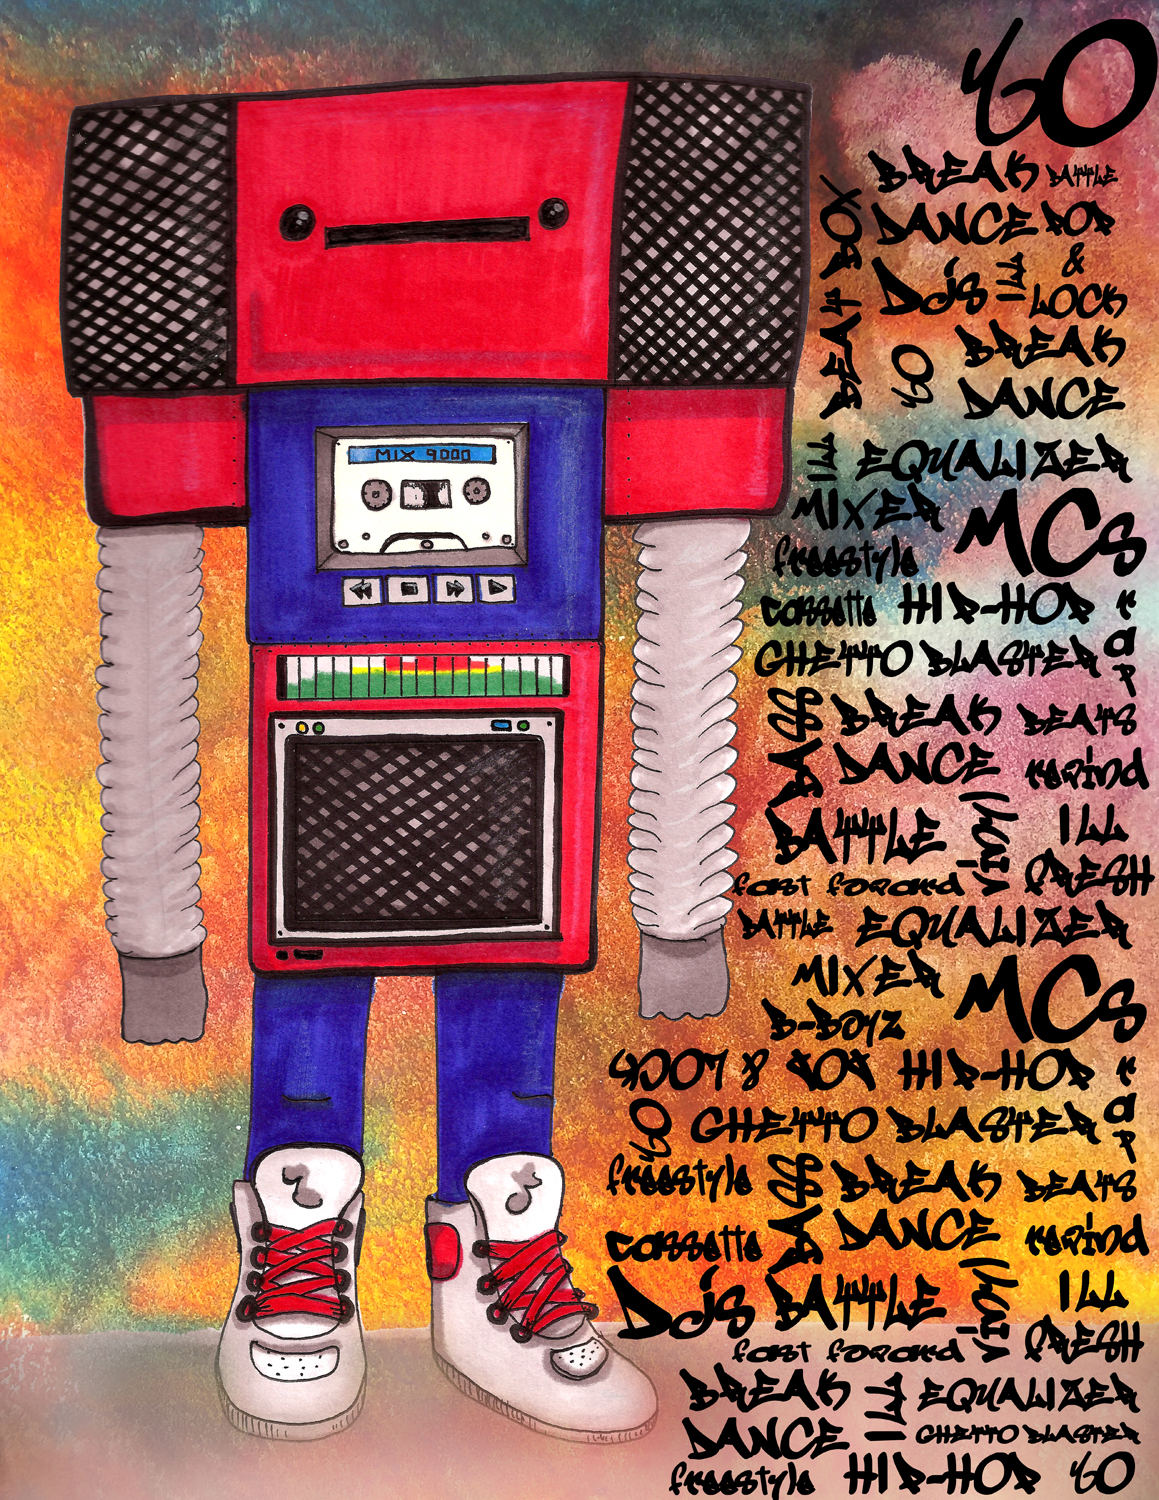 yO
BREAK BATTLE
BEAT BOX
DANCE POP
&
DJ's ILL LOCK
BREAK
yO
DANCE
ILL EQUALIZER
MIXER MCs
freestyle
cassette HIP-HOP rap
GHETTO BLASTER
BREAK BEATS
DANCE rewind
BATTLE vinyl ILL
fast foward FRESH
BATTLE EQUALIZER
MIXER MCs
B-BOyz
HIP-HOP rap
yO GHETTO BLASTER
freestyle BREAK BEATS
cassette DANCE rewind
DJ's BATTLE vinyl ILL
fast foward FRESH
BREAK ILL EQUALIZER
DANCE GHETTO BLASTER
freestyle HIP-HOP yO
MIX 9000